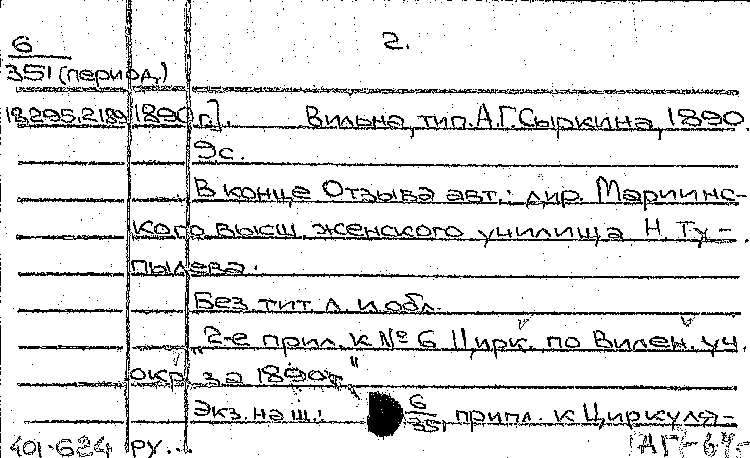 6 2.
351 (период.)
18.295.2189 1890 г.]. Вильна, тип. А.Г. Сыркина, 1890.
9с.
В конце Отзыва авт.: дир. Мариинс-
кого высш. женского училища Н. Ту-
пылева.
Без тит. л. и обл.
"2-е прил. к № 6 Цирк. по Вилен. уч.
окр. за 1890 г."
Экз. на ш.: 6/351, припл. к Циркуля-
401.624 РУ...